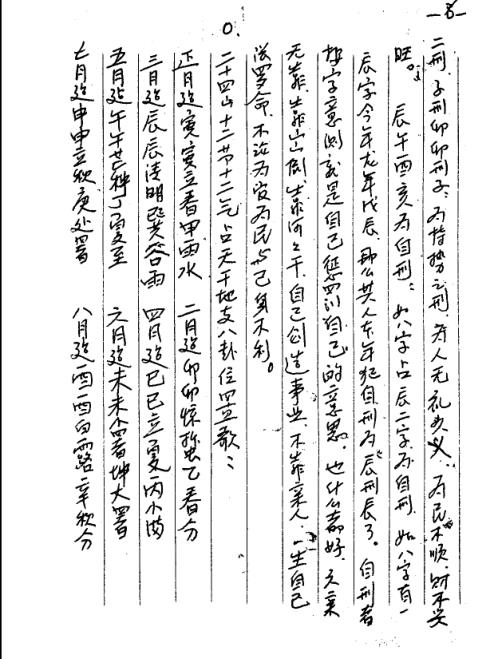 —3—
0.
二刑、子刑卯卯刑子:为恃势之刑、为人无礼失义、为民不顺、财不安
旺。辰午酉亥为自刑:如八字占辰二字为自刑、如八字有一
辰字今年龙年戊辰、那么其人本年犯自刑为辰刑辰了。自刑者
按字意测就是自己惩罚自己的意思、也什么都好、六亲
无靠、靠山山倒靠河河干、自己创造事业、不靠亲人、一生自己
没罗命、不论为官为民与己身不利。
二十四山十二节十二气占天干地支八卦位置歌:
正月建寅寅立春甲雨水 二月建卯卯惊蛰乙春分
三月建辰辰清明巽谷雨 四月建巳巳立夏丙小满
五月建午午芒种丁夏至 六月建未未小暑坤大暑
七月建申申立秋庚处暑 八月建酉酉白露辛秋分